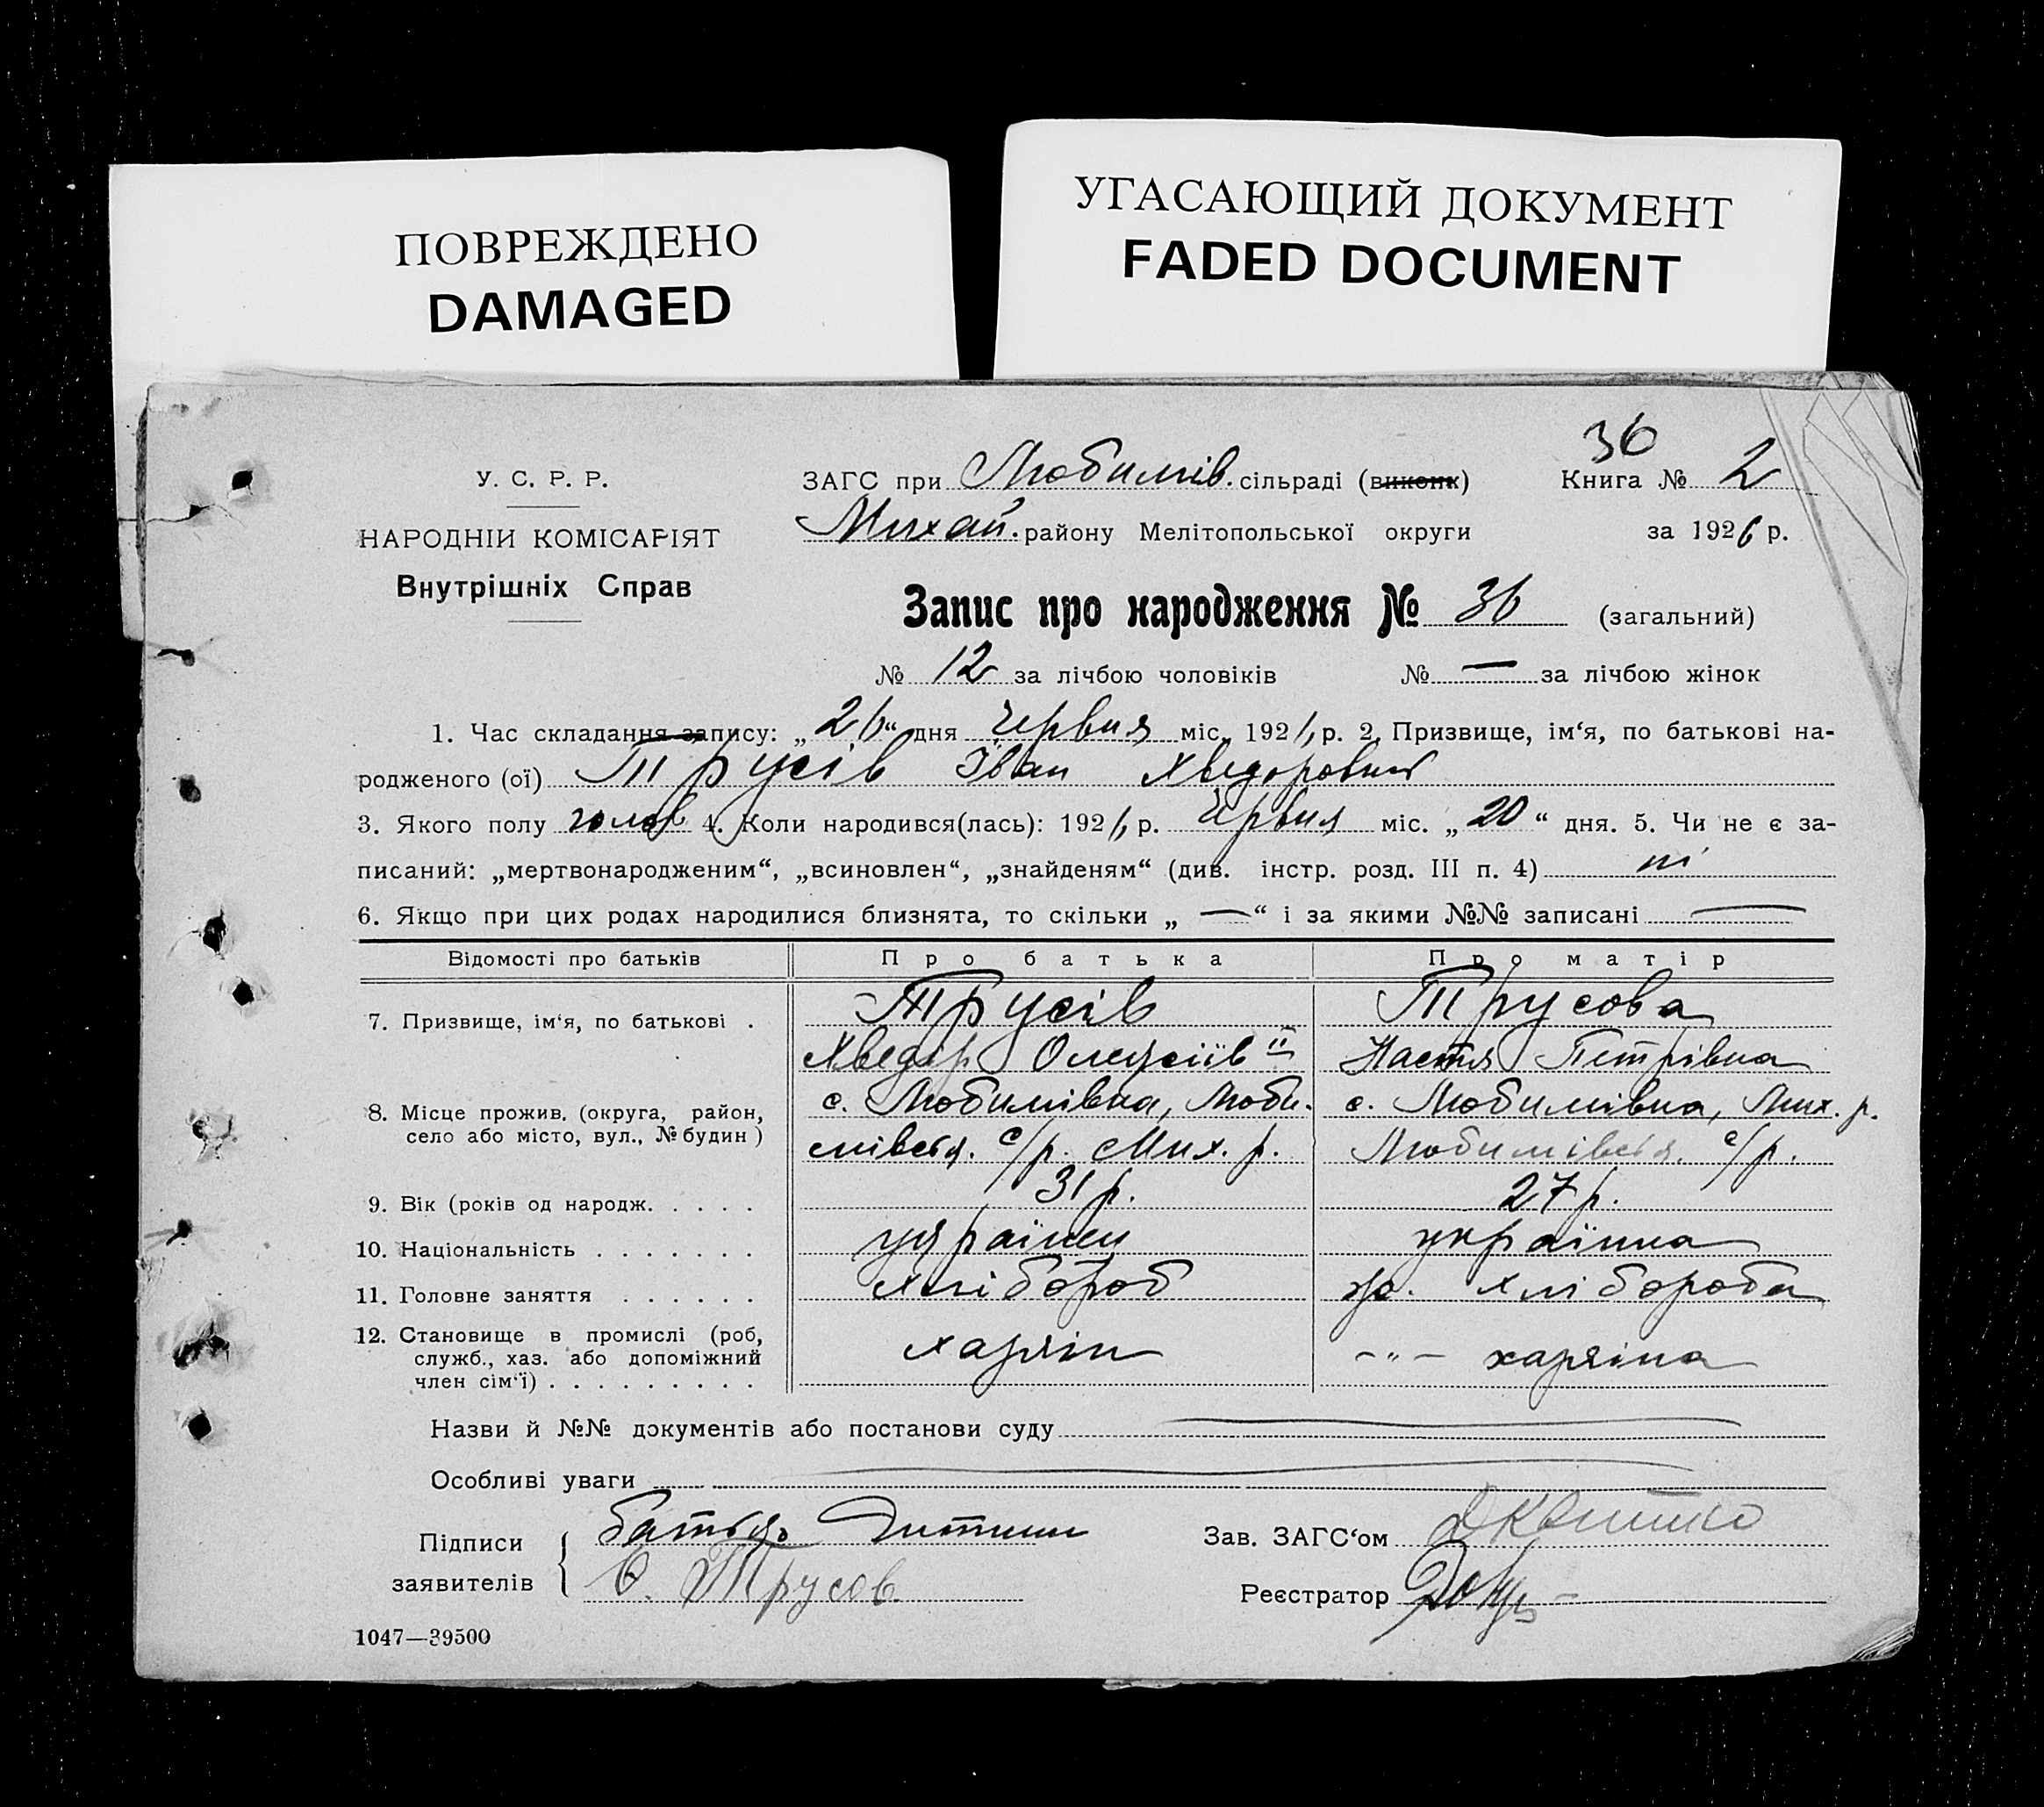 ПОВРЕЖДЕНО
DAMAGED
УГАСАЮЩИЙ ДОКУМЕНТ
FADED DOCUMENT
36
У. С. Р. Р.
НАРОДНІИ КОМІСАРІЯТ
Внутрішніх Справ
ЗАГС при Любимів. сільраді (виконк) Книга № 2
Михай. району Мелітопольської округи за 1926 р.
Запис про народження № 36 (загальний)
№ 12 за лічбою чоловіків № — за лічбою жінок
1. Час складання запису: „26“ дня червня міс. 1926 р. 2. Призвище, ім‘я, по батькові на-
родженого (ої) Трусів Іван Хведорович
3. Якого полу чолов 4. Коли народився(лась): 1926 р. Червня міс. „20“ дня. 5. Чи не є за-
писаний: „мертвонародженим“, „всиновлен“, „знайденям“ (див. інстр. розд. III п. 4) ні
6. Якщо при цих родах народилися близнята, то скільки „—“ і за якими №№ записані —
Відомості про батьків Про батька Про матір
7. Призвище, ім‘я, по батькові . Трусів Трусова
Хведір Олексіїв Настя Петрівна
8. Місце прожив. (округа, район, с. Любимівка, Люби- с. Любимівка, Мих. р.
село або місто, вул., № будин) мівськ. с/р. Мих. р. Любимівськ. с/р.
9. Вік (років од народж. . . . . 31 р. 27 р.
10. Національність . . . . . . . українец українка
11. Головне заняття . . . . . . хлібороб хлібороба
12. Становище в промислі (роб, хазяїн -"- хазяіна
служб., хаз. або допоміжний
член сім‘ї) . . . . . . . . .
Назви й №№ документів або постанови суду
Особливі уваги
Підписи батько дитини Зав. ЗАГС‘ом
заявителів Ѳ. Трусов. Реєстратор
1047—39500